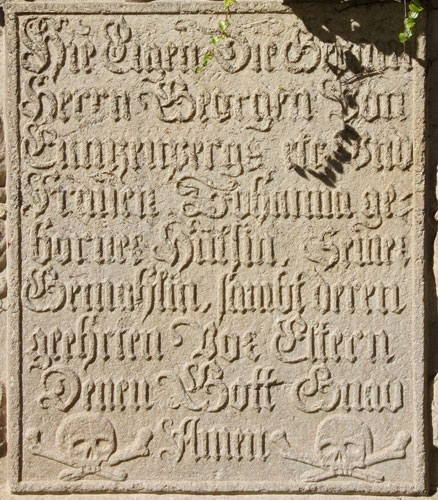 Hie Ligen Die Gebein
Herrn Georgen Von
Ennzenpergs etc Und
Frauen Johanna ge=
borner Hütlin, Seiner
Gemahlin, sambt deren
geehrten Vor Eltern
Denen Gott Gnad
Amen